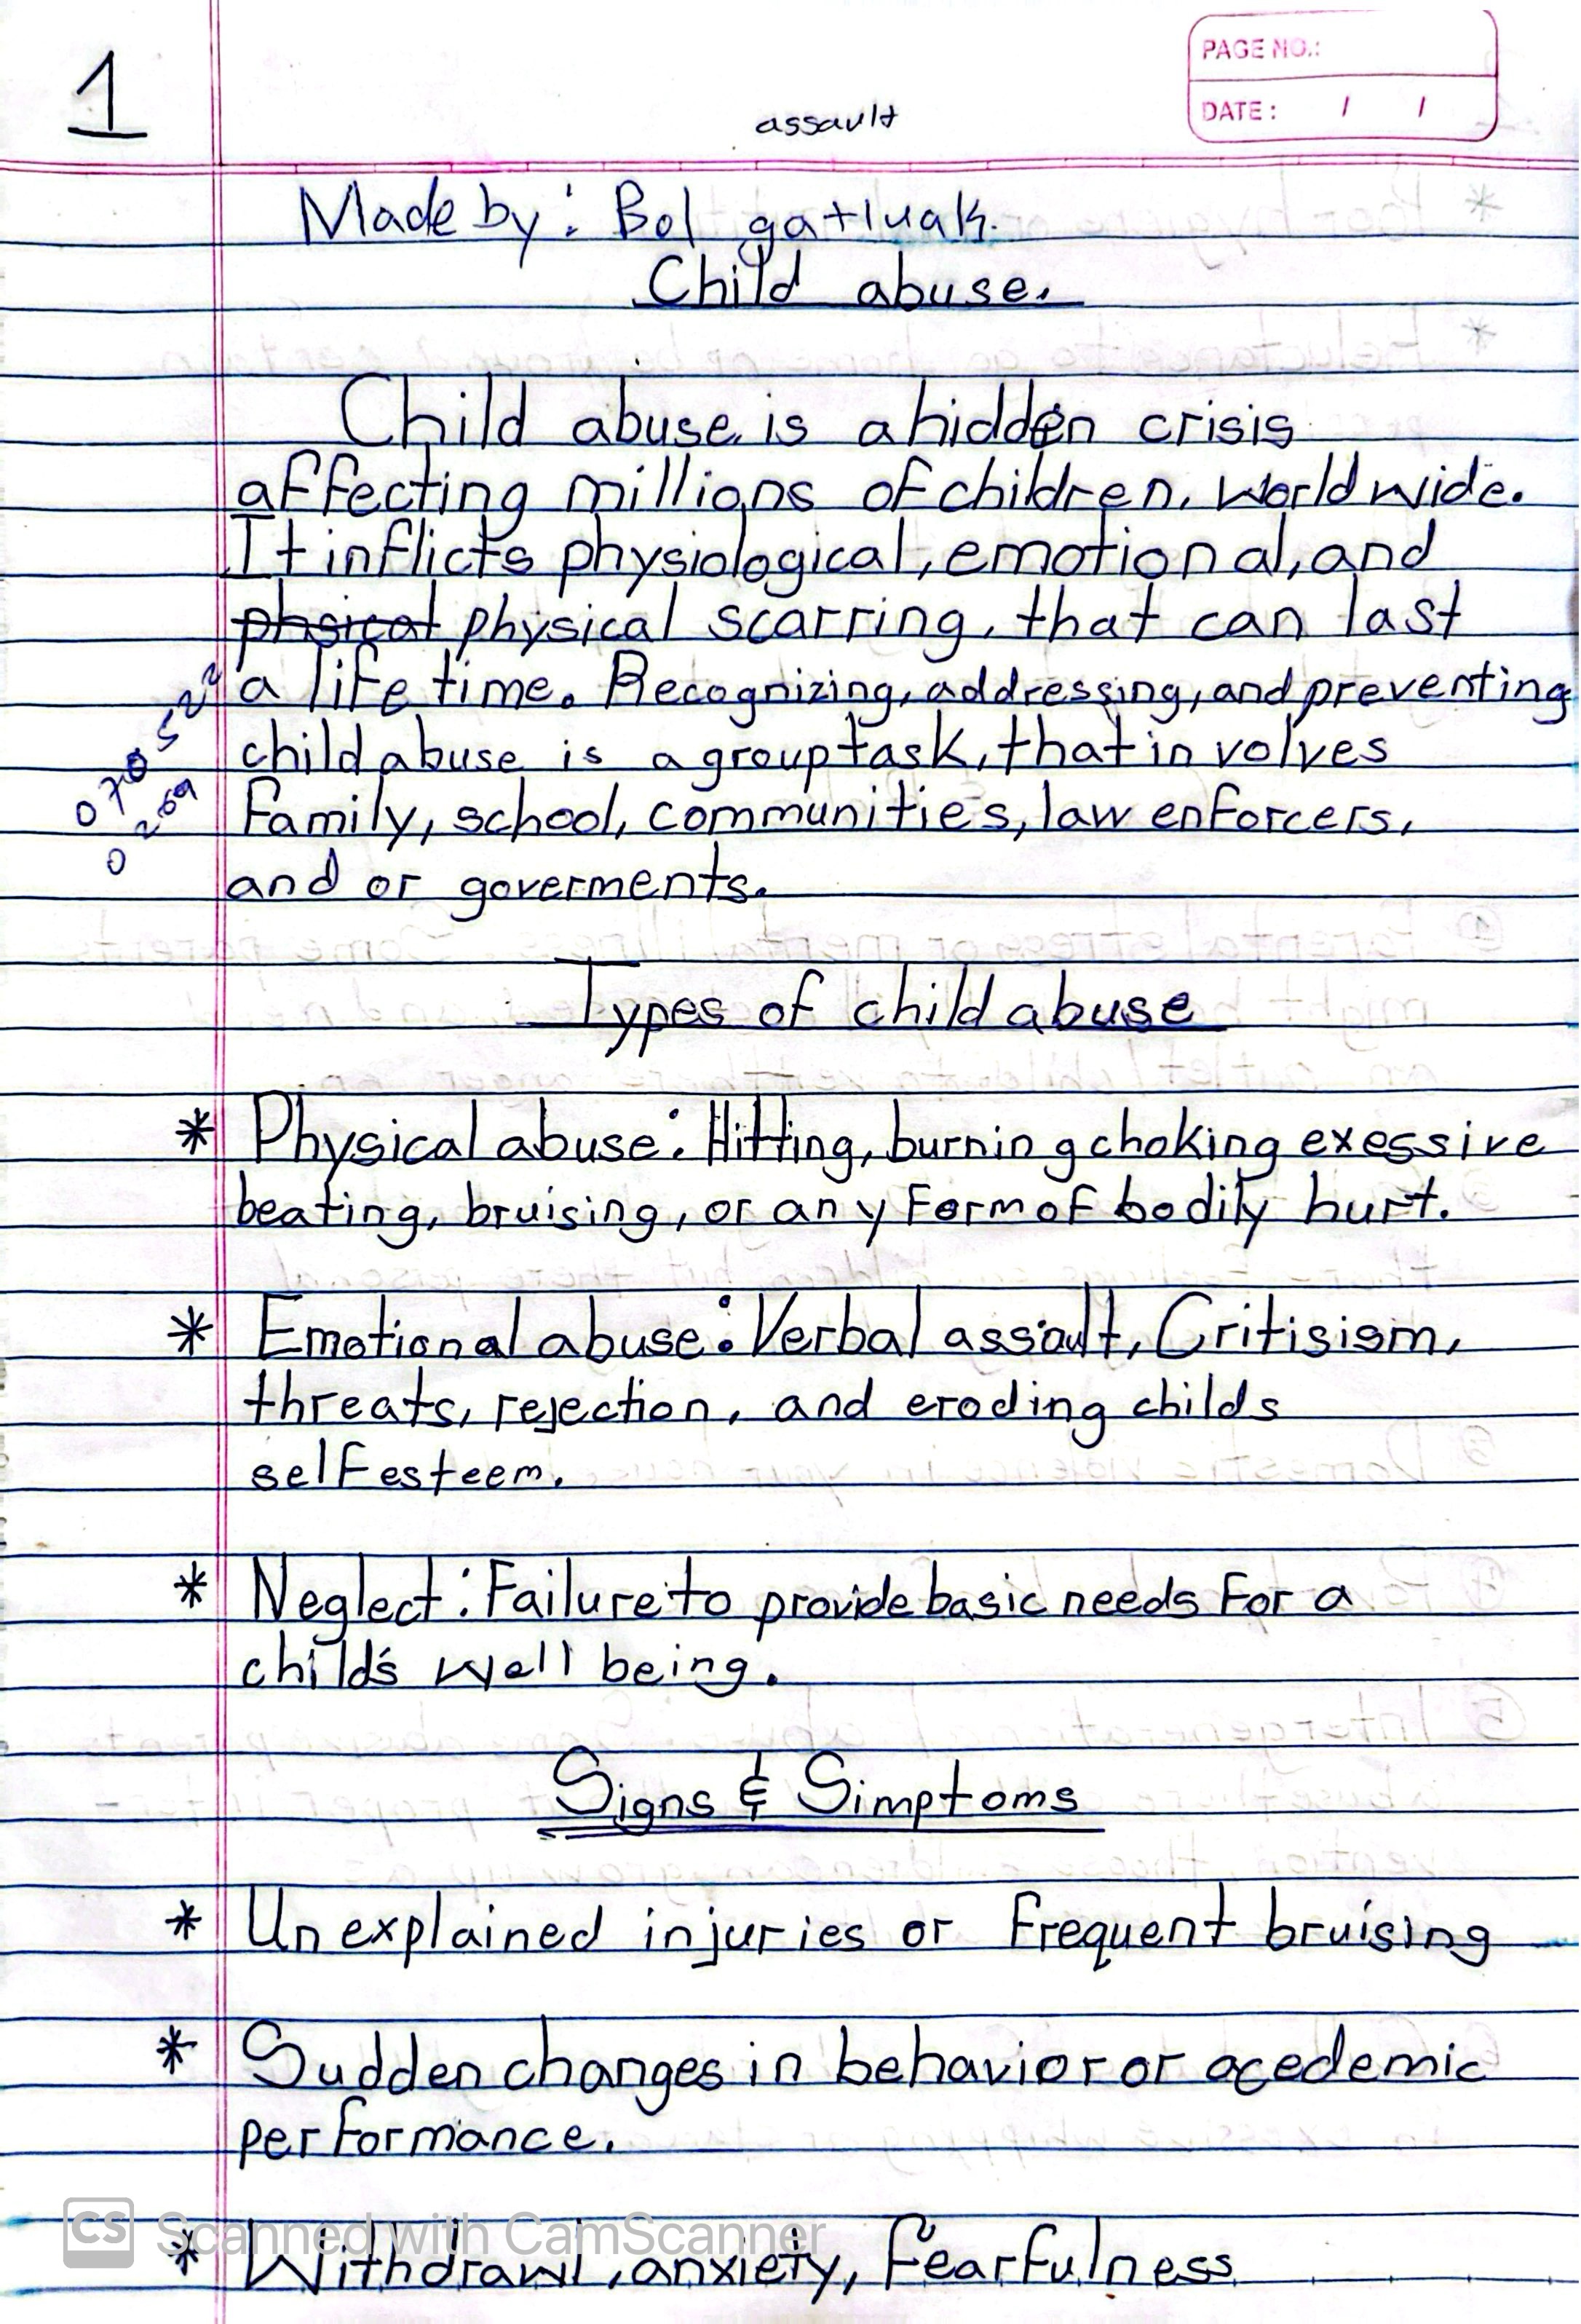 1
PAGE NO.:
DATE: / /
assault
Made by: Bol gatluak.
Child abuse.
Child abuse is a hidden crisis
affecting millions of children, worldwide.
It inflicts physiological, emotional, and
phsical physical scarring, that can last
a life time. Recognizing, addressing, and preventing
child abuse is a group task, that involves
Family, school, communities, law enforcers,
and or goverments.
Types of child abuse
* Physical abuse: Hitting, burning choking exessive
beating, bruising, or any Form of bodily hurt.
* Emotional abuse: Verbal assault, Critisism,
threats, rejection, and eroding childs
self esteem.
* Neglect: Failure to provide basic needs For a
child's well being.
Signs & Simptoms
* Unexplained injuries or frequent bruising
* Sudden changes in behavior or acedemic
performance.
* Withdrawl, anxiety, fearfulness
CS Scanned with CamScanner